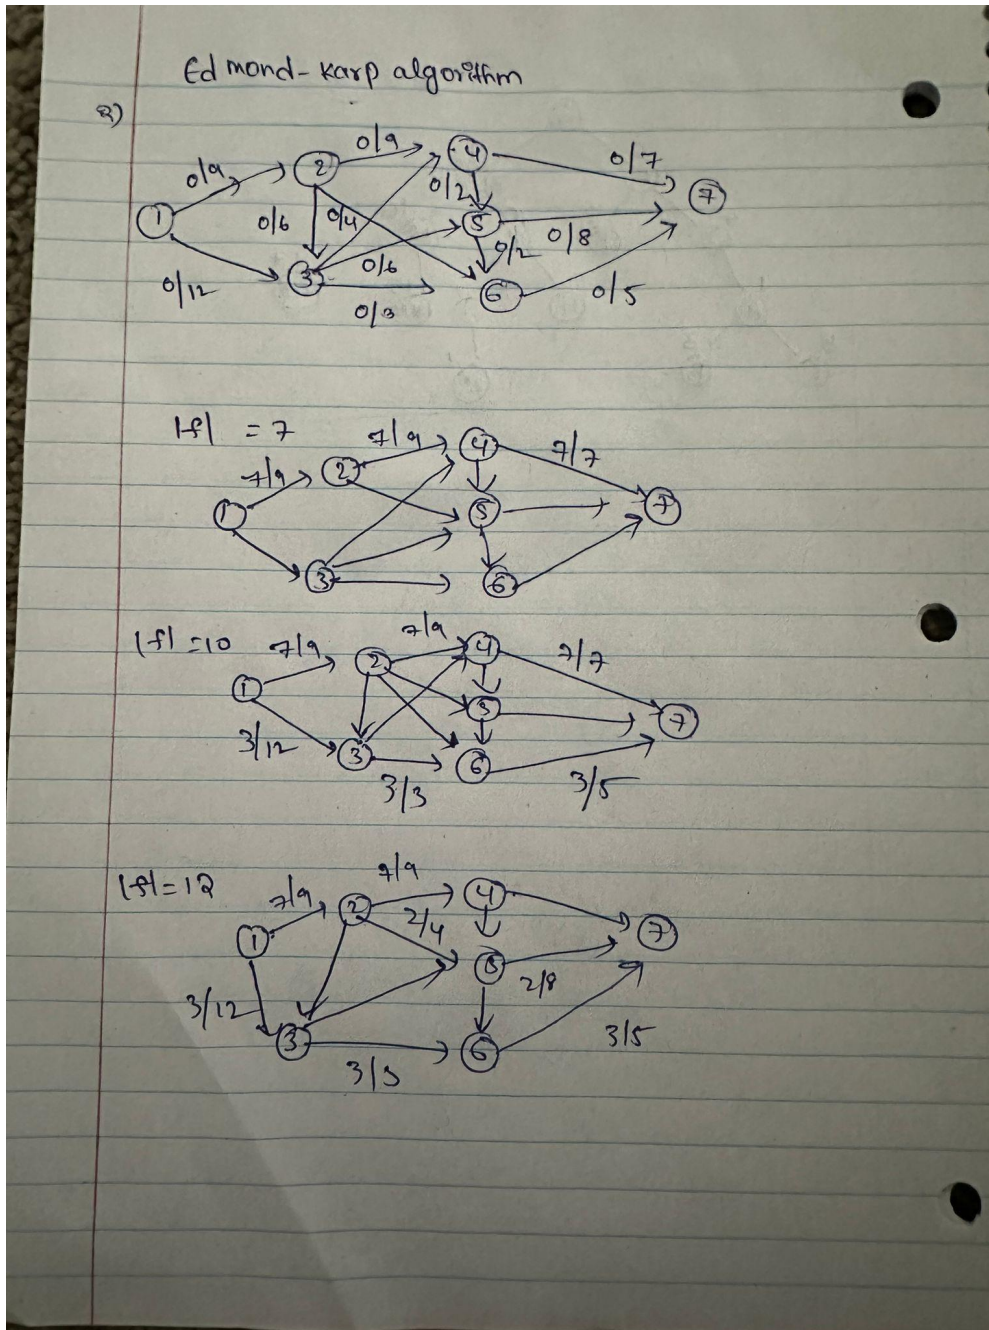 Edmond-karp algorithm
2)
0/9 4 0/7
0/9 2 0/2 7
1 0/6 0/4 5 0/8
0/2
0/12 3 0/6 6 0/5
0/3
|f| = 7 7/9 4 7/7
7/9 2
1 5 7
3 6
|f| = 10 7/9 7/9 4 7/7
2
1 5 7
3/12 3 6
3/3 3/5
|f| = 12 7/9 7/9 4
2 2/4 7
1 5 2/8
3/12 3 6 3/5
3/3